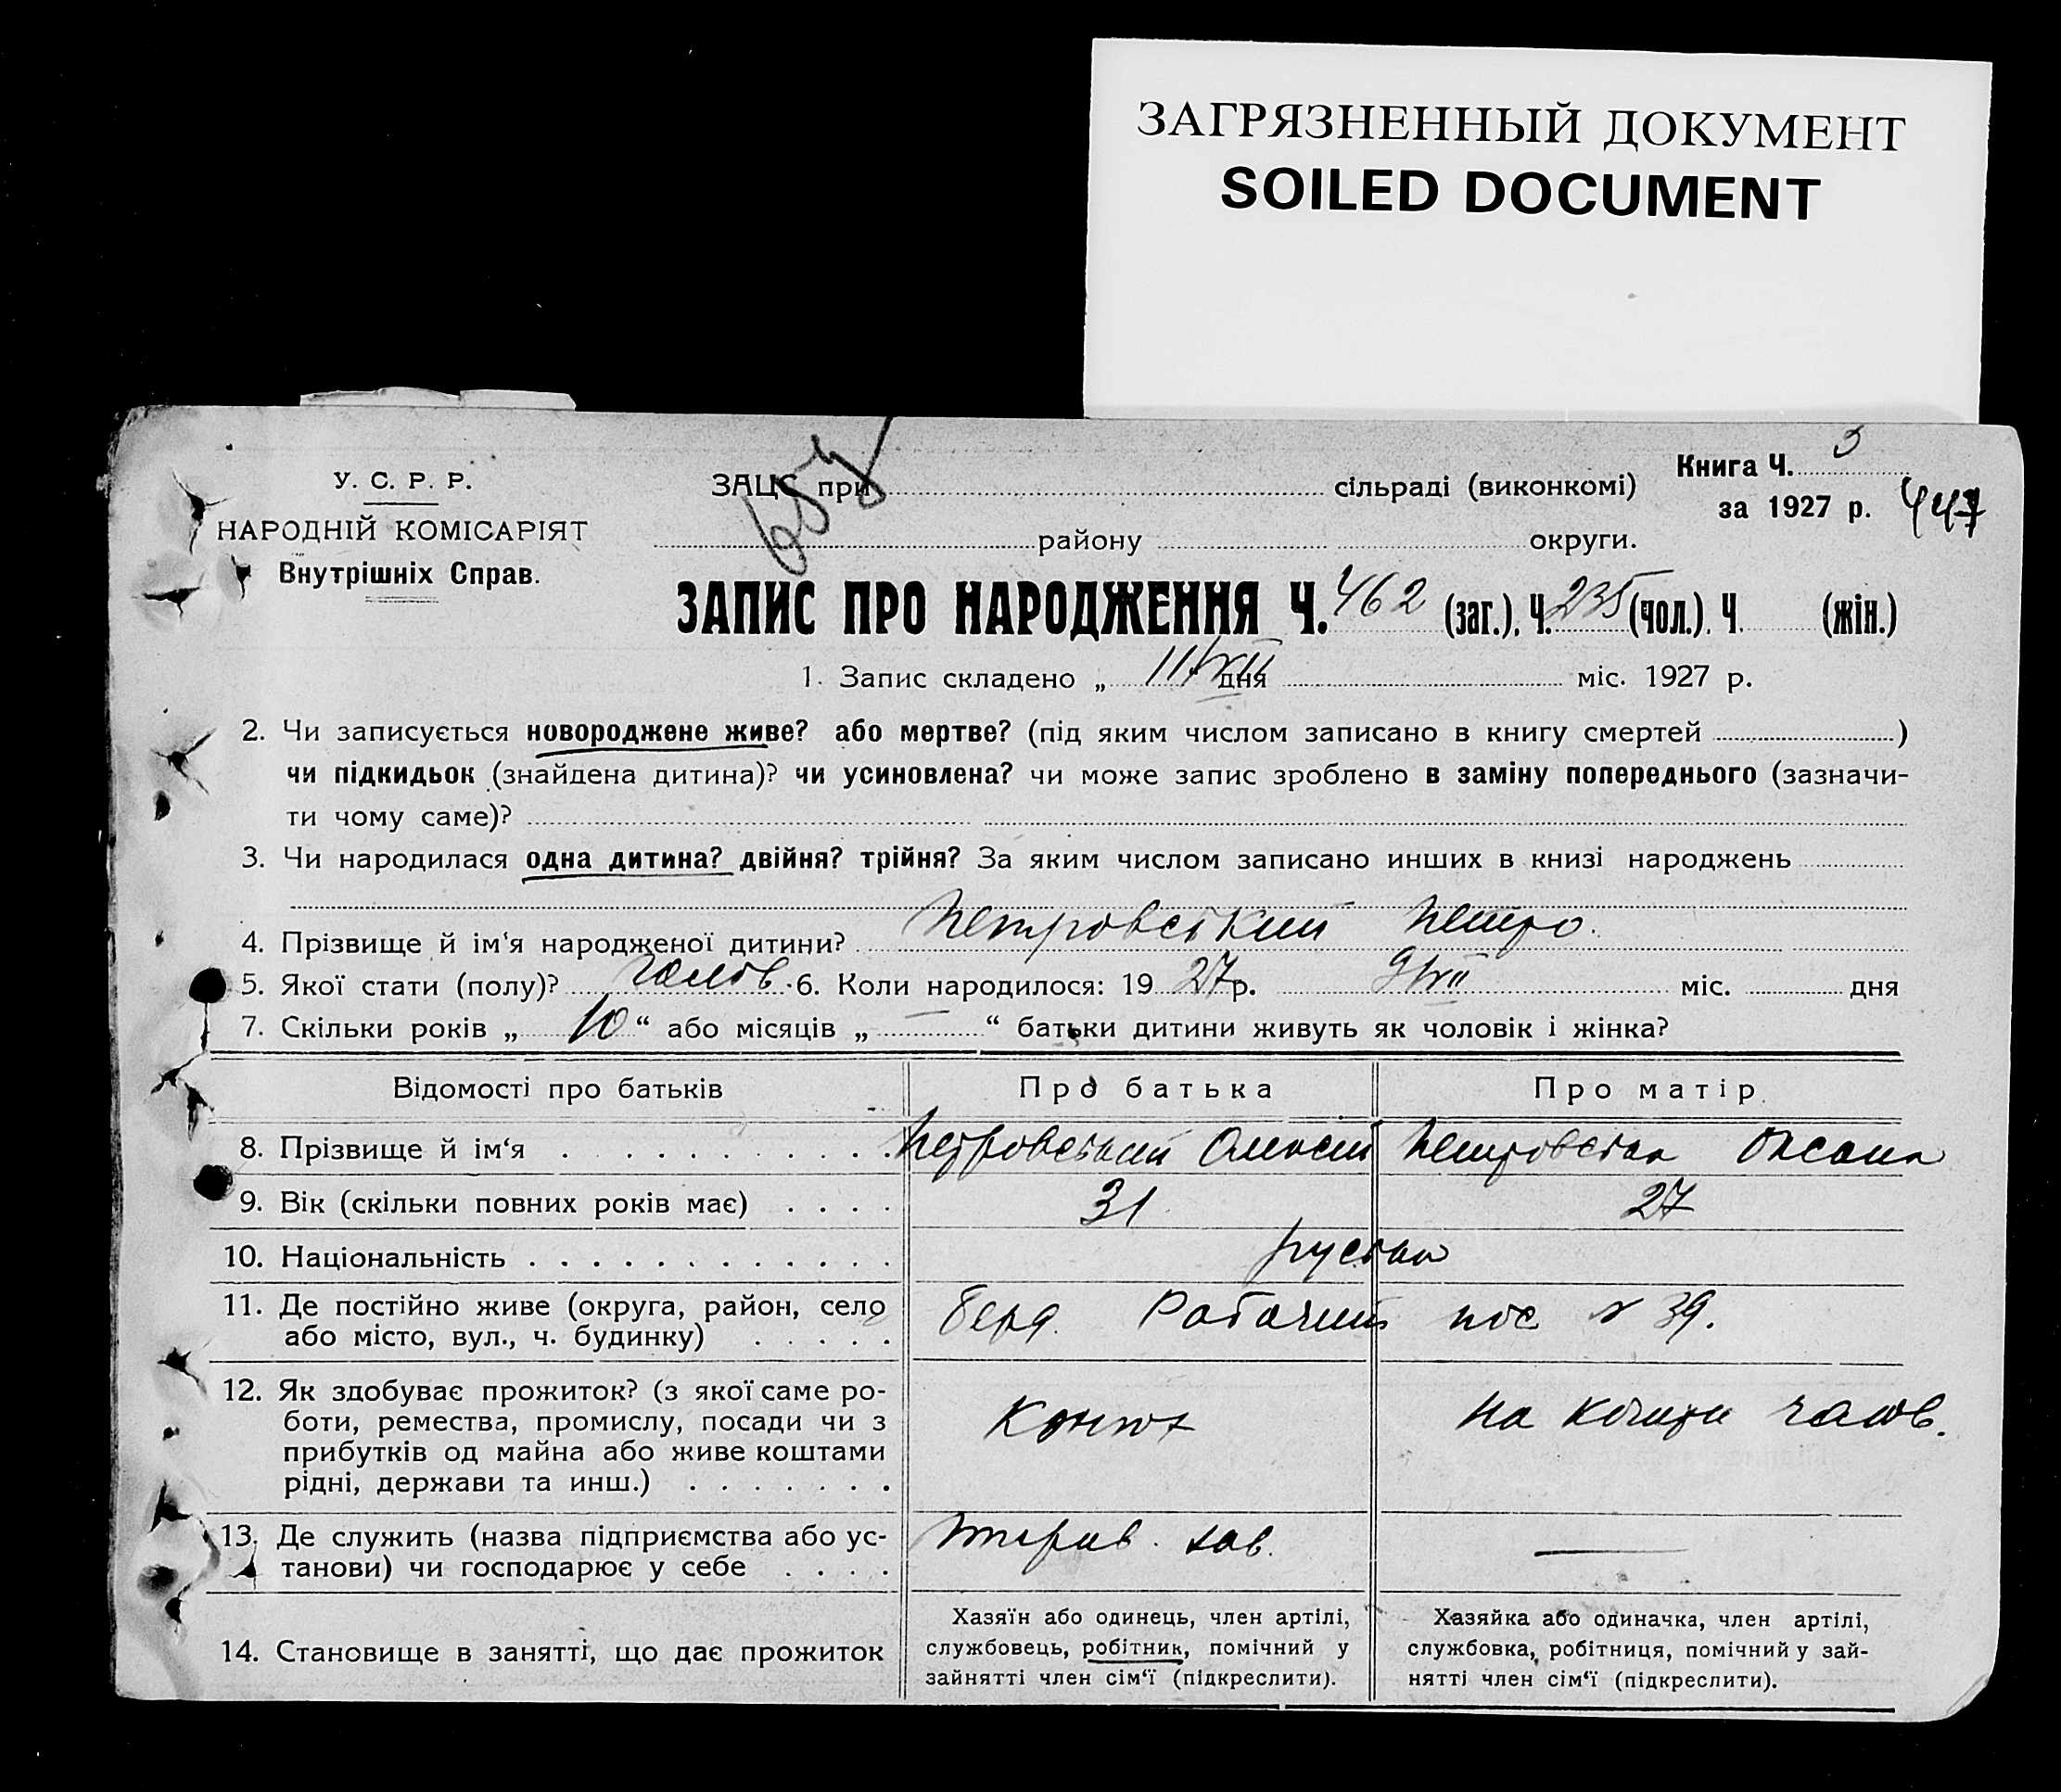 ЗАГРЯЗНЕННЫЙ ДОКУМЕНТ
SOILED DOCUMENT
У. С. Р. Р.
НАРОДНІЙ КОМІСАРІЯТ
Внутрішніх Справ.
ЗАЦС при сільраді (виконкомі)
району округи.
Книга Ч. 3
за 1927 р. 447
ЗАПИС ПРО НАРОДЖЕННЯ Ч. 462 (заг.), Ч. 235 (чол.), Ч. (жін.)
1. Запис складено „ 11/XII дня міс. 1927 р.
2. Чи записується новороджене живе? або мертве? (під яким числом записано в книгу смертей )
чи підкидьок (знайдена дитина)? чи усиновлена? чи може запис зроблено в заміну попереднього (зазначи-
ти чому саме)?
3. Чи народилася одна дитина? двійня? трійня? За яким числом записано инших в книзі народжень
4. Прізвище й ім‘я народженої дитини? Петровський Петро.
5. Якої стати (полу)? чолов. 6. Коли народилося: 19 27 р. міс. дня
7. Скільки років „ 10 “ або місяців „ — “ батьки дитини живуть як чоловік і жінка?
Відомості про батьків Про батька Про матір
8. Прізвище й ім‘я Петровський Олексій Петровська Оксана
9. Вік (скільки повних років має) 31 27
10. Національність руська
11. Де постійно живе (округа, район, село
або місто, вул., ч. будинку)
Берд. Рабочий пос № 39.
12. Як здобуває прожиток? (з якої саме ро-
боти, ремества, промислу, посади чи з
прибутків од майна або живе коштами
рідні, держави та инш.)
Конюх
На кошти чолов.
13. Де служить (назва підприємства або ус-
танови) чи господарює у себе
зав.
—
14. Становище в занятті, що дає прожиток
Хазяїн або одинець, член артілі,
службовець, робітник, помічний у
зайнятті член сім‘ї (підкреслити).
Хазяйка або одиначка, член артілі,
службовка, робітниця, помічний у зай-
нятті член сім‘ї (підкреслити).